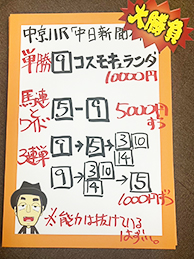 大勝負
中京11R「中日新聞
単勝 9 コスモキュランダ
10000円
馬連とワイド 5-9 5000円ずつ
3連単 9→5→3 10 4
9→3 10 4→5
1000円ずつ
※能力は抜けている
はずい。